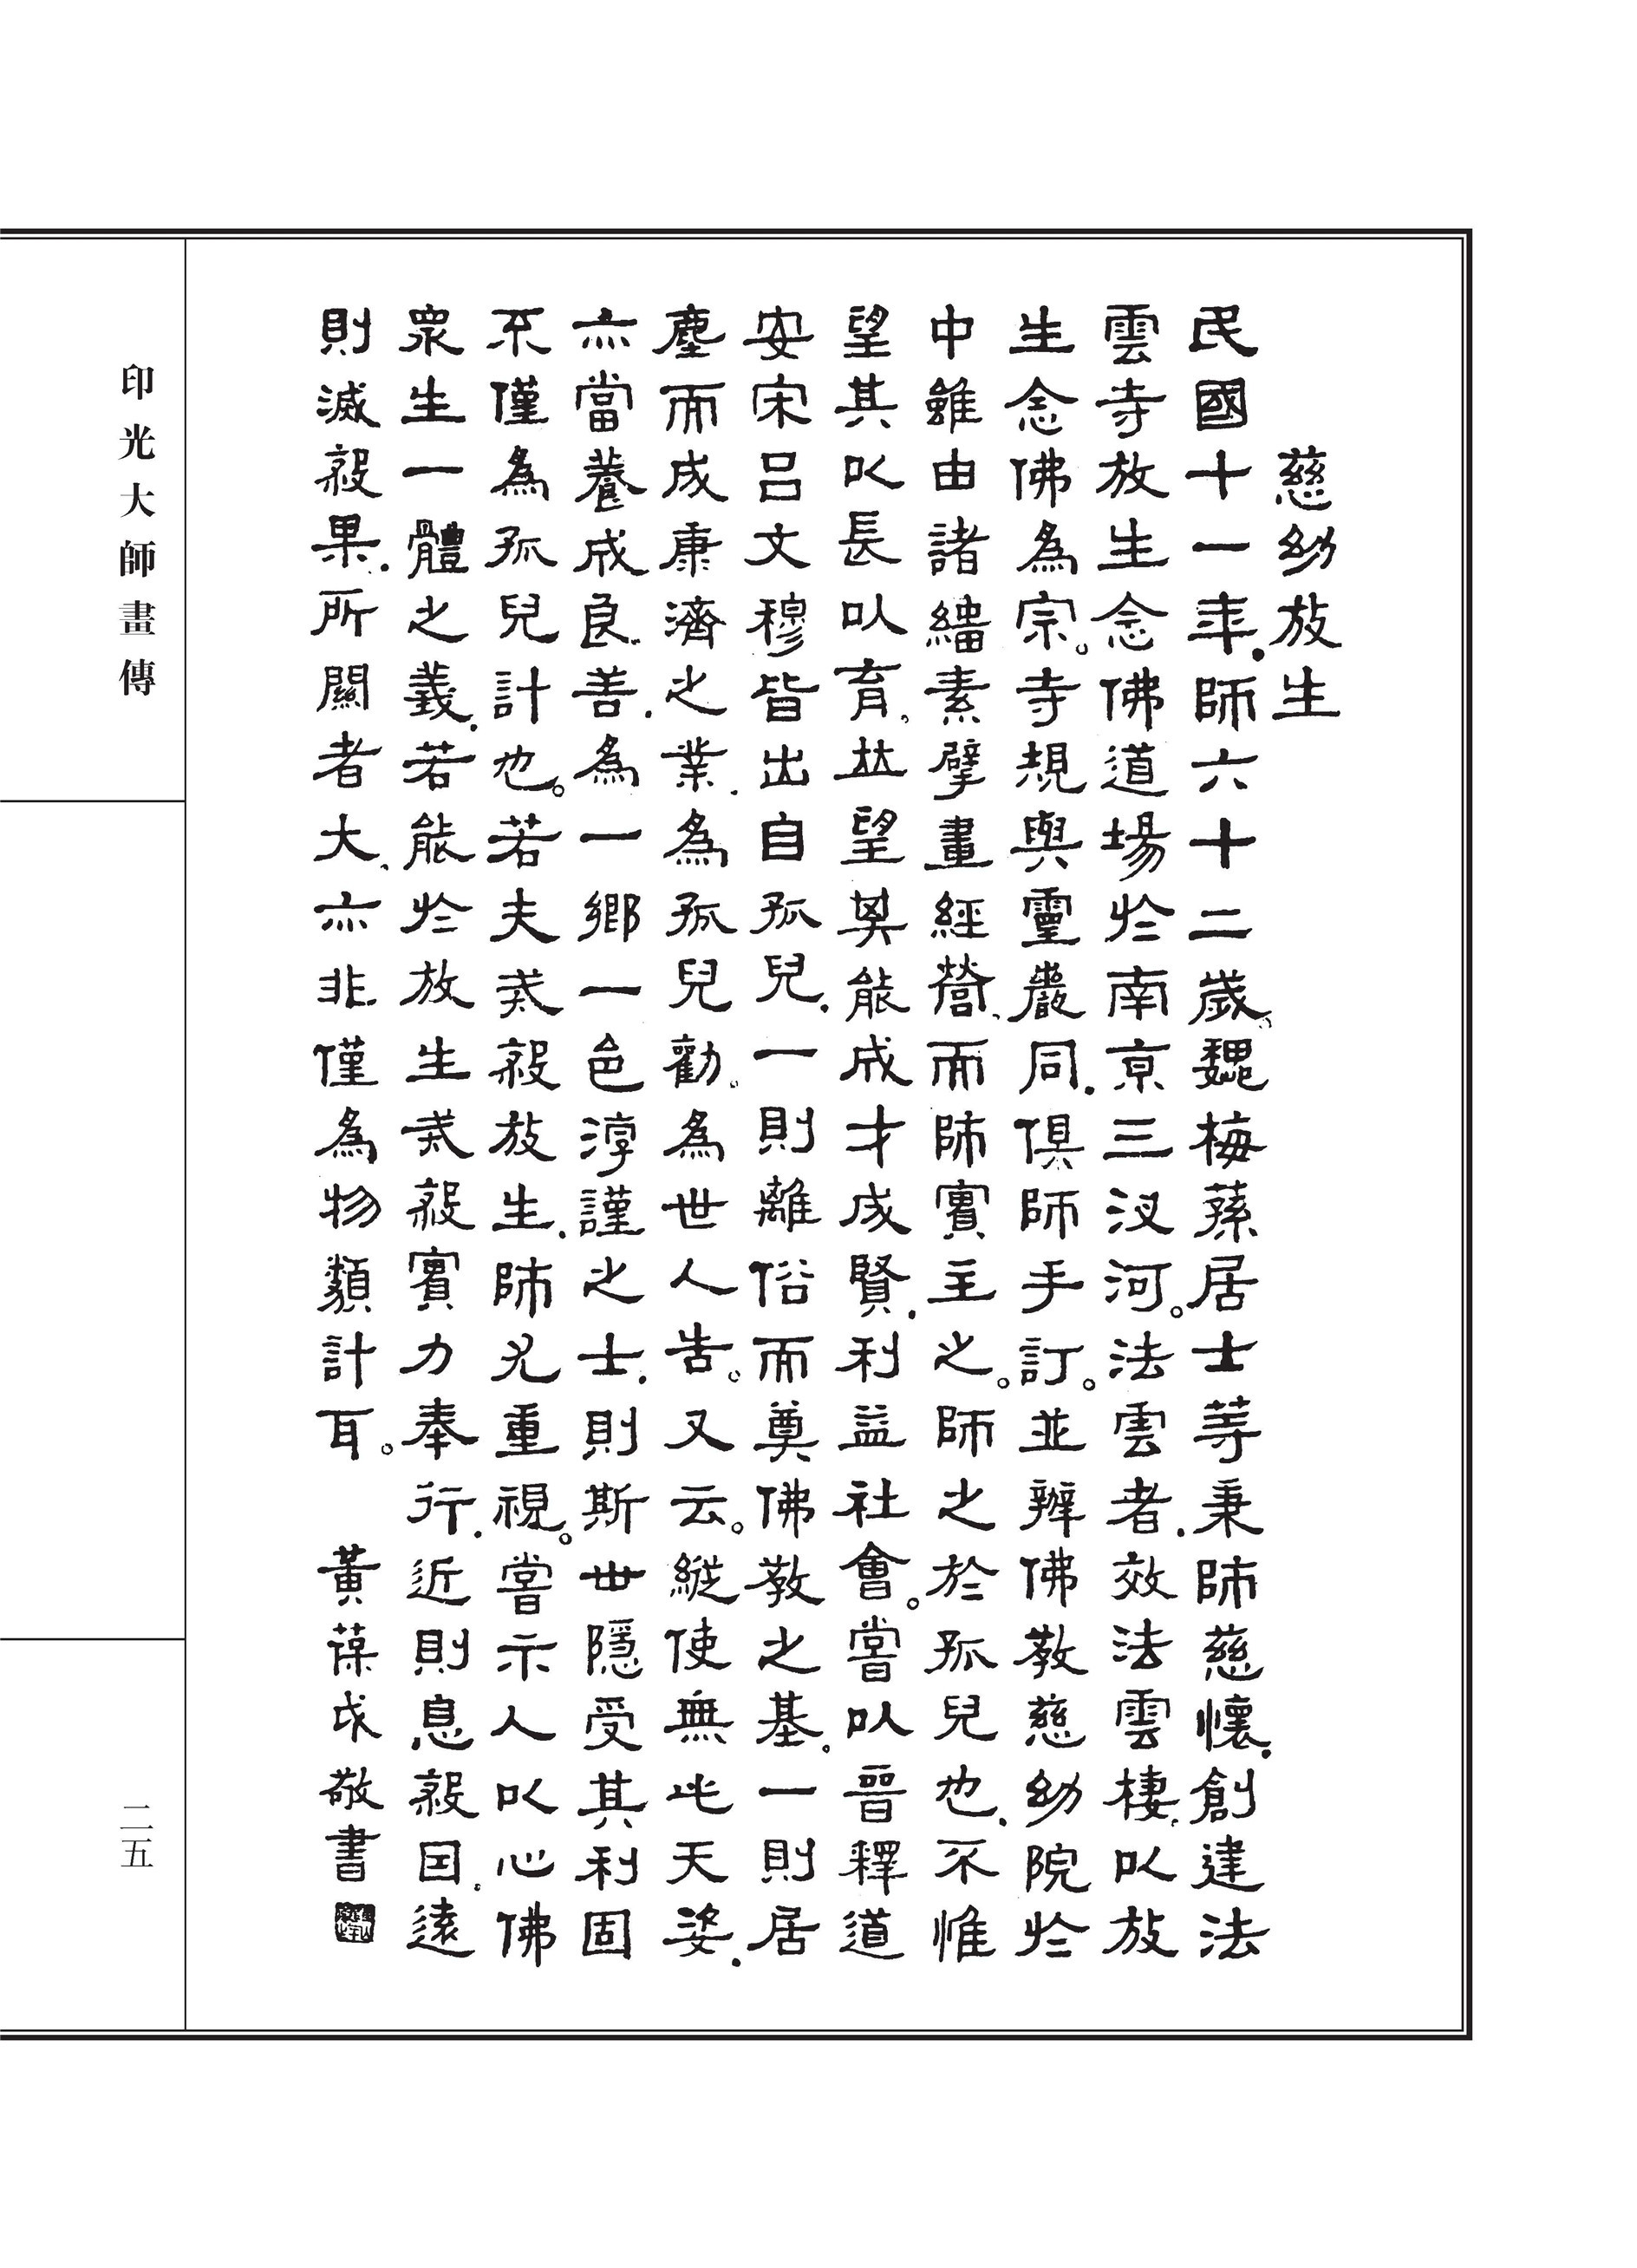 慈幼放生
民國十一年.師六十二歲。魏梅蓀居士等秉師慈懷.創建法
雲寺放生念佛道場於南京三汊河。法雲者.效法雲棲.以放
生念佛為宗。寺規與靈巖同.俱師手訂。並辦佛教慈幼院於
中雖由諸緇素擘畫經營.而師實主之。師之於孤兒也.不惟
望其以長以育。並望其能成才成賢.利益社會。嘗以晉釋道
安宋呂文穆皆出自孤兒.一則離俗而奠佛教之基。一則居
塵而成康濟之業.為孤兒勸。為世人告。又云。縱使無此天姿.
亦當養成良善.為一鄉一邑淳謹之士.則斯世隱受其利固
不僅為孤兒計也。若夫戒殺放生.師尤重視。嘗示人以心佛
眾生一體之義.若能於放生戒殺實力奉行.近則息殺因.遠
則滅殺果.所關者大.亦非僅為物類計耳。 黃葆戉敬書
印光大師畫傳
二五